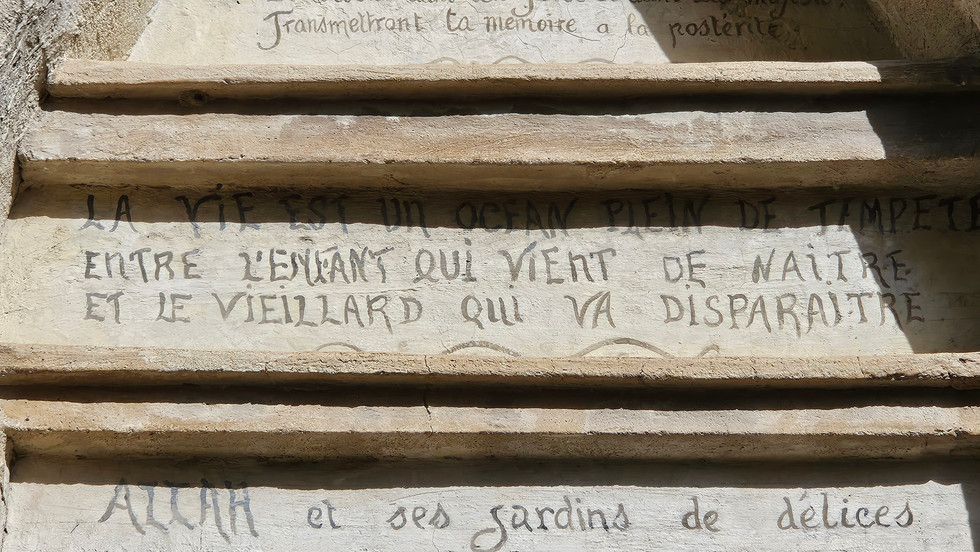 Transmettront ta mémoire a la postérité.
LA VIE EST UN OCEAN PLEIN DE TEMPETE
ENTRE L'ENFANT QUI VIENT DE NAÎTRE
ET LE VIEILLARD QUI VA DISPARAÎTRE
ALLAH et ses jardins de délices